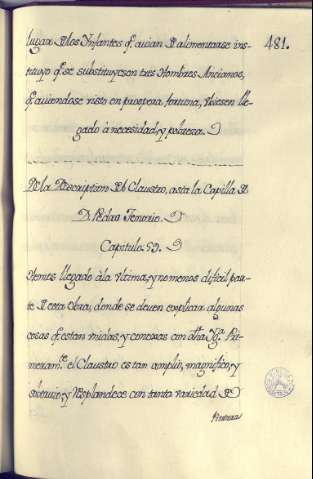 481.
lugar de los Infantes q.e avian de alimentarse ins-
tituyo q.e se substituyesen tres Hombres Ancianos,
q.e aviendose visto en prospera fortuna, viesen lle-
gado à necesidad, y pobreza.
De la Descripcion del Claustro, asta la Capilla de
D. Pedro Tenorio.
Capitulo 59.
Hemos llegado à la ultima, y no menos dificil par-
te de esta obra, donde se deven explicar algunas
cosas q.e estan unidas, y conexas con dha Yg.a Pri-
meram.te el Claustro es tan amplio, magnifico, y
y Resplandece con tanta variedad de